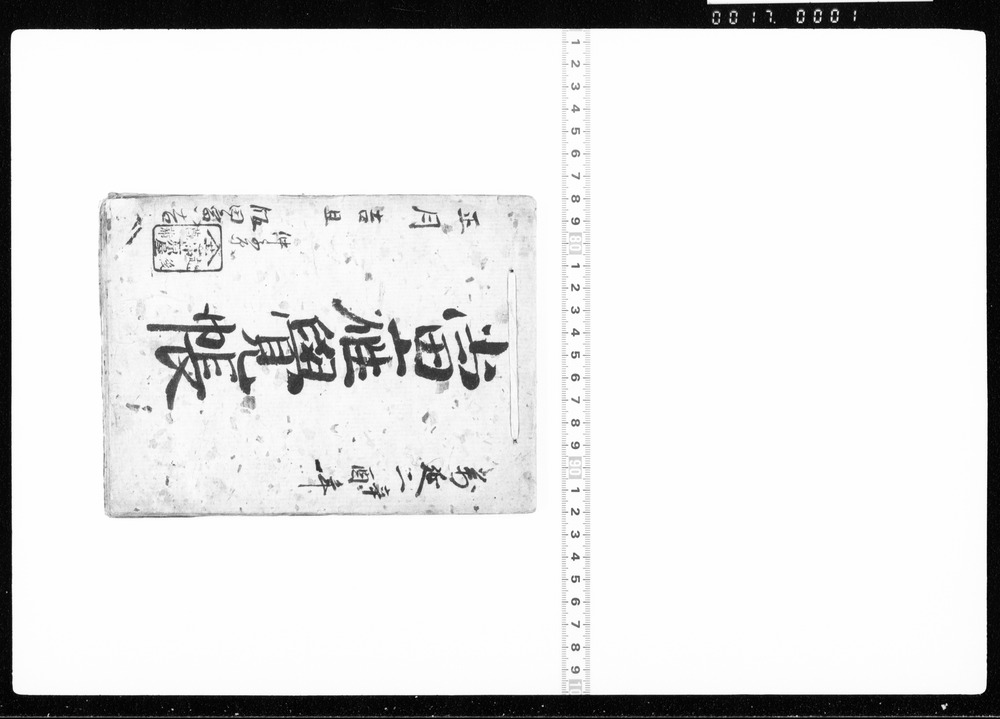 0017. 0001
萬延二辛酉年
當座覺帳
正月吉旦
1 2 3 4 5 6 7 8 9 80 1 2 3 4 5 6 7 8 9 90 1 2 3 4 5 6 7 8 9